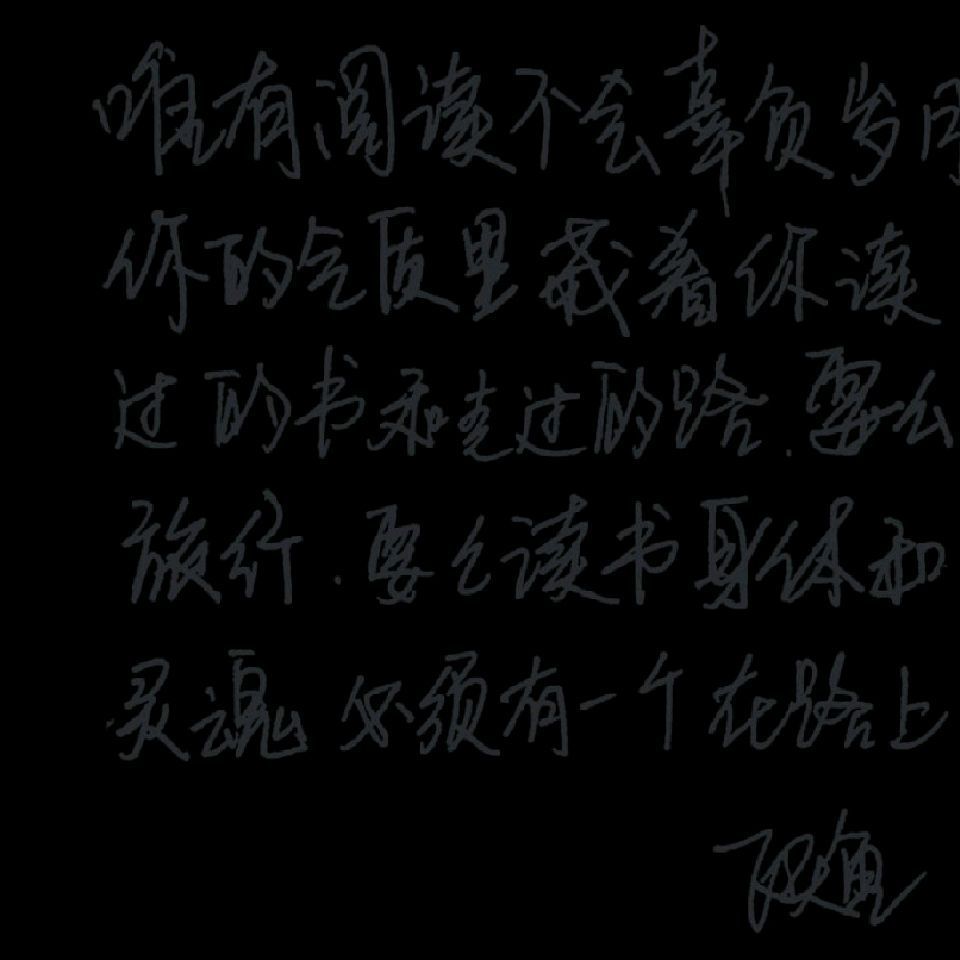 唯有阅读不会辜负岁月
你的气质里载着你读
过的书和走过的路.要么
旅行.要么读书身体和
灵魂 必须有一个在路上